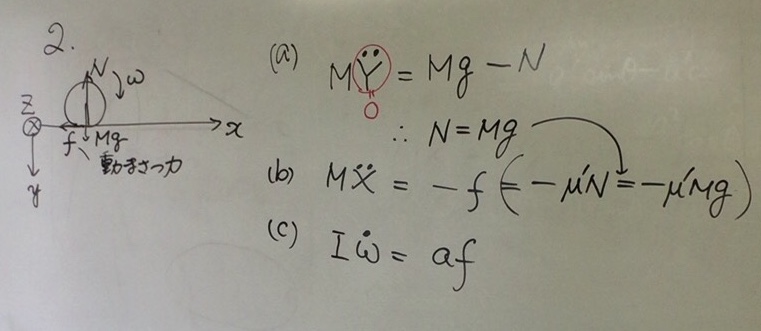 2.
N
ω
Z
x
f
Mg
動まさつ力
y
(a) MŸ = Mg - N
0
∴ N = Mg
(b) MẌ = -f (= -μ'N = -μ'Mg)
(c) Iω̇ = af